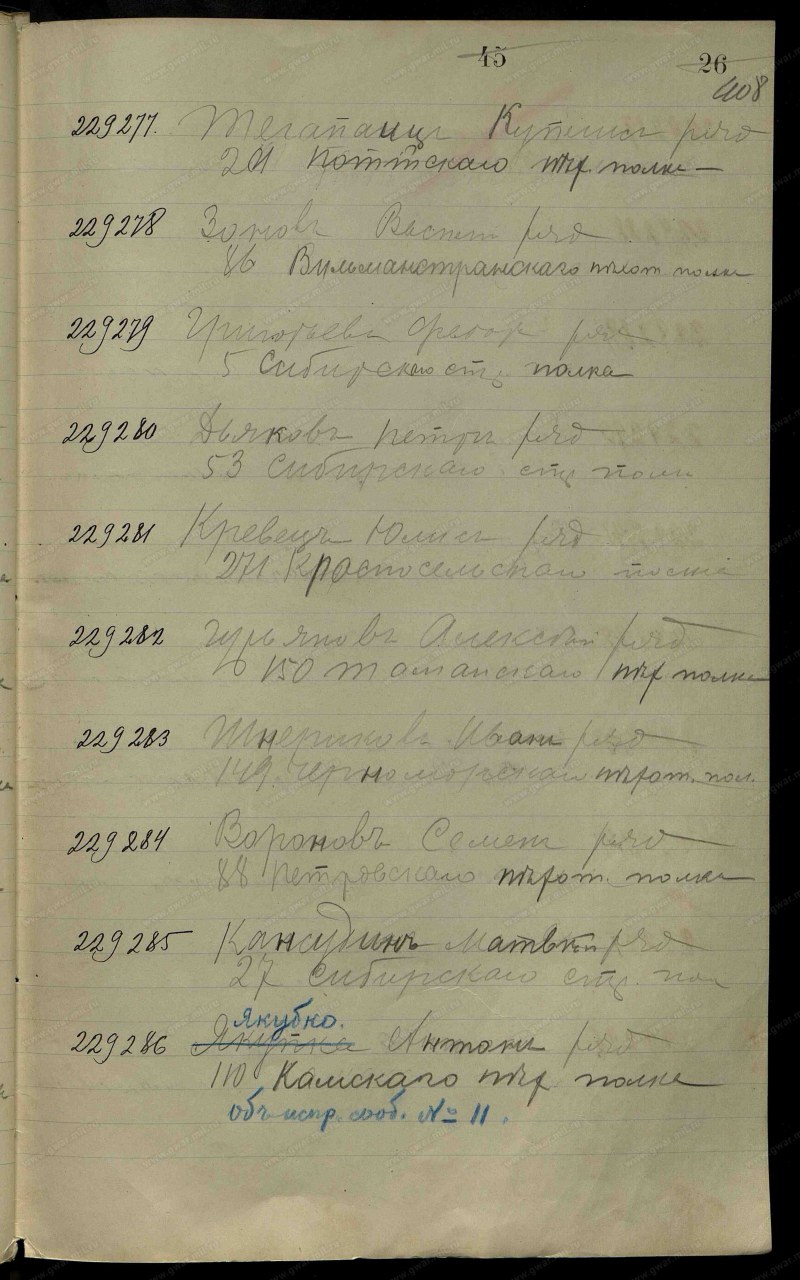 45 26
408
229277. ряд
201 Потійскаго пѣх. полка
229278 Зоновъ Васили ряд
86 Вильманстранскаго пѣхот полка
229279 Григорьевъ Федор ряд
5 Сибирскаго стр. полка
229280 Дьяковъ Петръ ряд
53 Сибирскаго стр полк
229281 Кревецъ Юлисъ ряд
271 Красносельскаго полка
229282 Гурьяновъ Алексѣй ряд
150 Таманскаго пѣх полка
229283 Иванъ ряд
149 Черноморскаго пѣхот. пол.
229284 Вороновъ Семенъ ряд
88 Петровскаго пѣхот. полка
229285 Кансудинъ Матвѣй ряд
27 Сибирскаго стр. пол
Якубко.
229286 Якупка Антонъ ряд
110 Камскаго пѣх полка
объ испр. сооб. № 11.